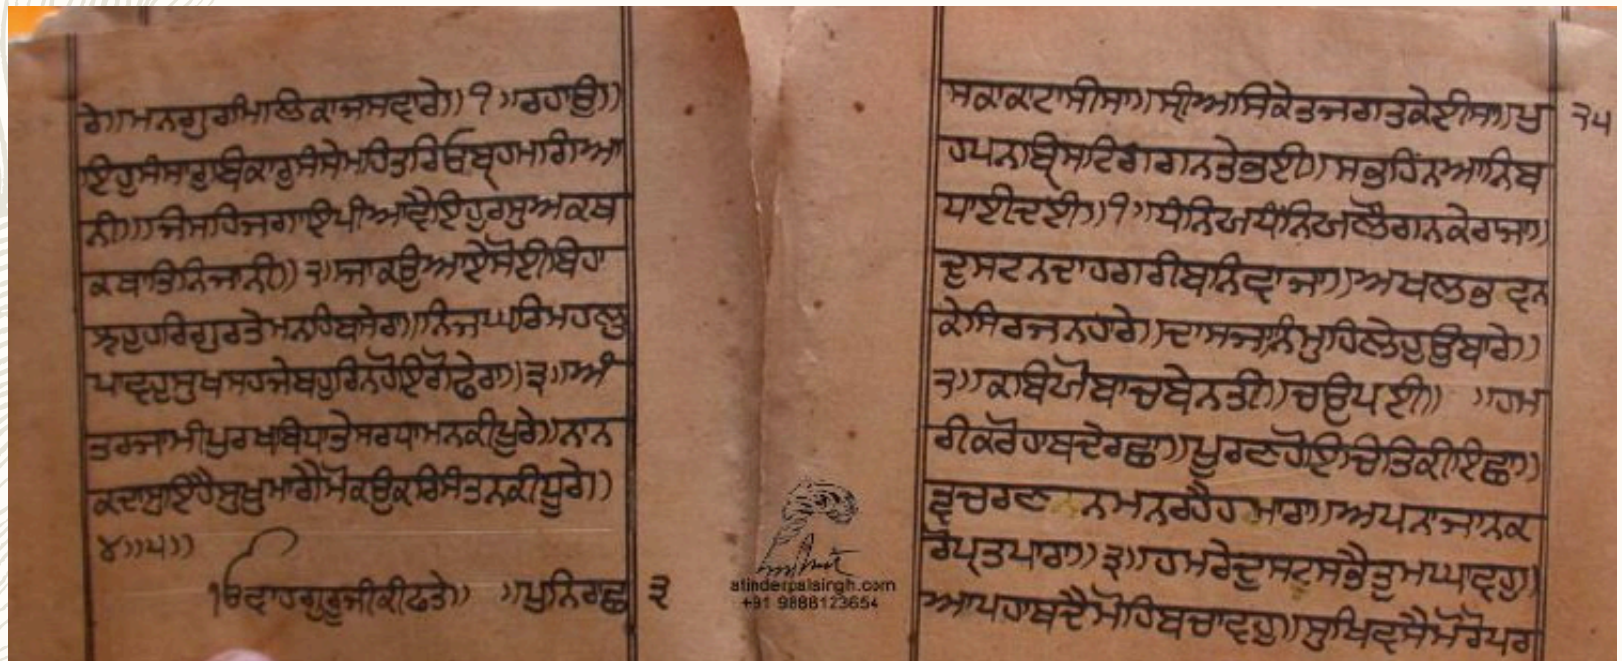 ਰੇ॥ਮਨਗੁਰਮਿਲਿਕਾਜਸਵਾਰੇ॥੧॥ਰਹਾਉ॥
ਇਹੁਸੰਸਾਰੁਬਿਕਾਰੁਸੰਸੇਮਹਿਤਰਿਓਬ੍ਰਹਮਗਿਆ
ਨੀ॥ਜਿਸਹਿਜਗਾਇਪੀਆਵੈਇਹੁਰਸੁਅਕਥ
ਕਥਾਤਿਨਿਜਾਨੀ॥੨॥ਜਾਕਉਆਏਸੋਈਬਿਹਾ
ਝਹੁਹਰਿਗੁਰਤੇਮਨਹਿਬਸੇਰਾ॥ਨਿਜਘਰਿਮਹਲੁ
ਪਾਵਹੁਸੁਖਸਹਜੇਬਹੁਰਿਨਹੋਇਗੋਫੇਰਾ॥੩॥ਅੰ
ਤਰਜਾਮੀਪੁਰਖਬਿਧਾਤੇਸਰਧਾਮਨਕੀਪੂਰੇ॥ਨਾਨ
ਕਦਾਸੁਇਹੈਸੁਖੁਮਾਗੈਮੋਕਉਕਰਿਸੰਤਨਕੀਧੂਰੇ॥
੪॥੫॥
ੴਵਾਹਗੁਰੂਜੀਕੀਫਤੇ॥ ॥ਪੁਨਿਰਾਛ ੩
ਸਕਾਕਟਾਸੀਸਾ॥ਸ੍ਰੀਆਸਿਕੇਤਜਗਤਕੇਈਸਾ॥ਪੁ ੨੫
ਹਪਨਬ੍ਰਿਸਟਿਗਗਨਤੇਭਈ॥ਸਭਹਿਨਆਨਿਬ
ਧਾਈਦਈ॥੧॥ਧੰਨਿਖਧੰਨਿਖਲੋਗਨਕੇਰਾਜਾ॥
ਦੁਸਟਨਦਾਹਗਰੀਬਨਿਵਾਜਾ॥ਅਖਲਭਵਨ
ਕੇਸਿਰਜਨਹਾਰੇ॥ਦਾਸਜਾਨਿਮੁਹਿਲੇਹੁਉਬਾਰੇ॥
੨॥ਕਬਿਯੋਬਾਚਬੇਨਤੀ॥ਚਉਪਈ॥ ॥ਹਮ
ਰੀਕਰੋਹਾਥਦੈਰਛਾ॥ਪੂਰਣਹੋਇਚਿਤਕੀਇਛਾ॥
ਵਚਰਣਨਮਨਰਹੈਹਮਾਰਾ॥ਅਪਨਾਜਾਨਕ
ਰੋਪ੍ਰਤਪਾਰਾ॥੩॥ਹਮਰੇਦੁਸਟਸਭੈਤੁਮਘਾਵਹੁ॥
ਆਪਹਾਥਦੈਮੋਹਿਬਚਾਵਹੁ॥ਸੁਖਿਵਸੈਮੋਰੋਪਰ
atinderpalsingh.com
+91 9888123654